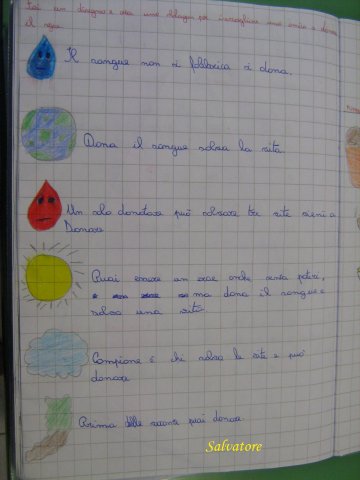 Fai un disegno e crea uno slogan per invogliare una amico a donare
il sangue
Il sangue non si fabbrica si dona.
Dona il sangue salva la vita.
Un solo donatore può salvare tre vite vieni a
Donare
Puoi essere un eroe anche senza poteri,
ma dona il sangue e
salva una vita
Campione è chi salva la vita e può
donare
Prima delle vacanze puoi donare.
Salvatore